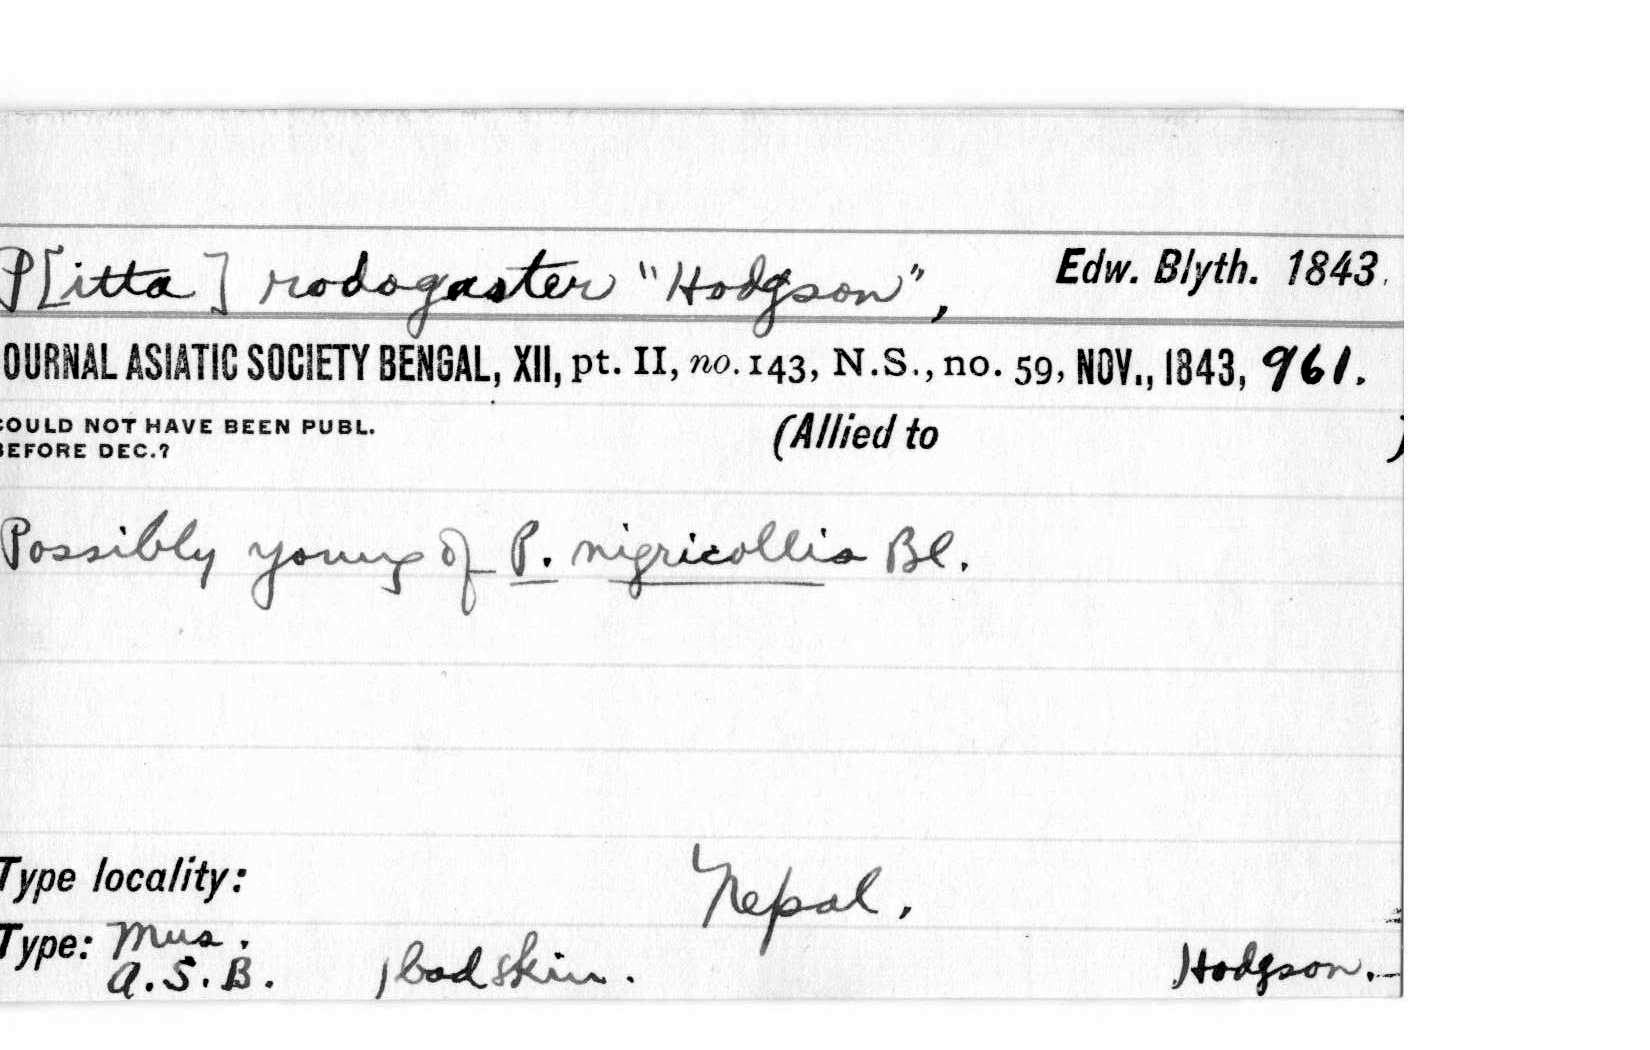 P[itta] rodogaster "Hodgson", Edw. Blyth. 1843.
OURNAL ASIATIC SOCIETY BENGAL, XII, pt. II, no. 143, N.S., no. 59, NOV., 1843, 961.
COULD NOT HAVE BEEN PUBL.
BEFORE DEC.?
(Allied to )
Possibly young of P. nigricollis Bl.
Type locality: Nepal.
Type: Mus.
A.S.B. 1 bad skin. Hodgson.